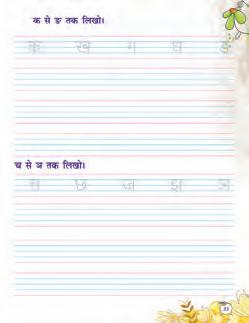 क से ङ तक लिखो।
क ख ग घ ङ
च से ञ तक लिखो।
च छ ज झ ञ